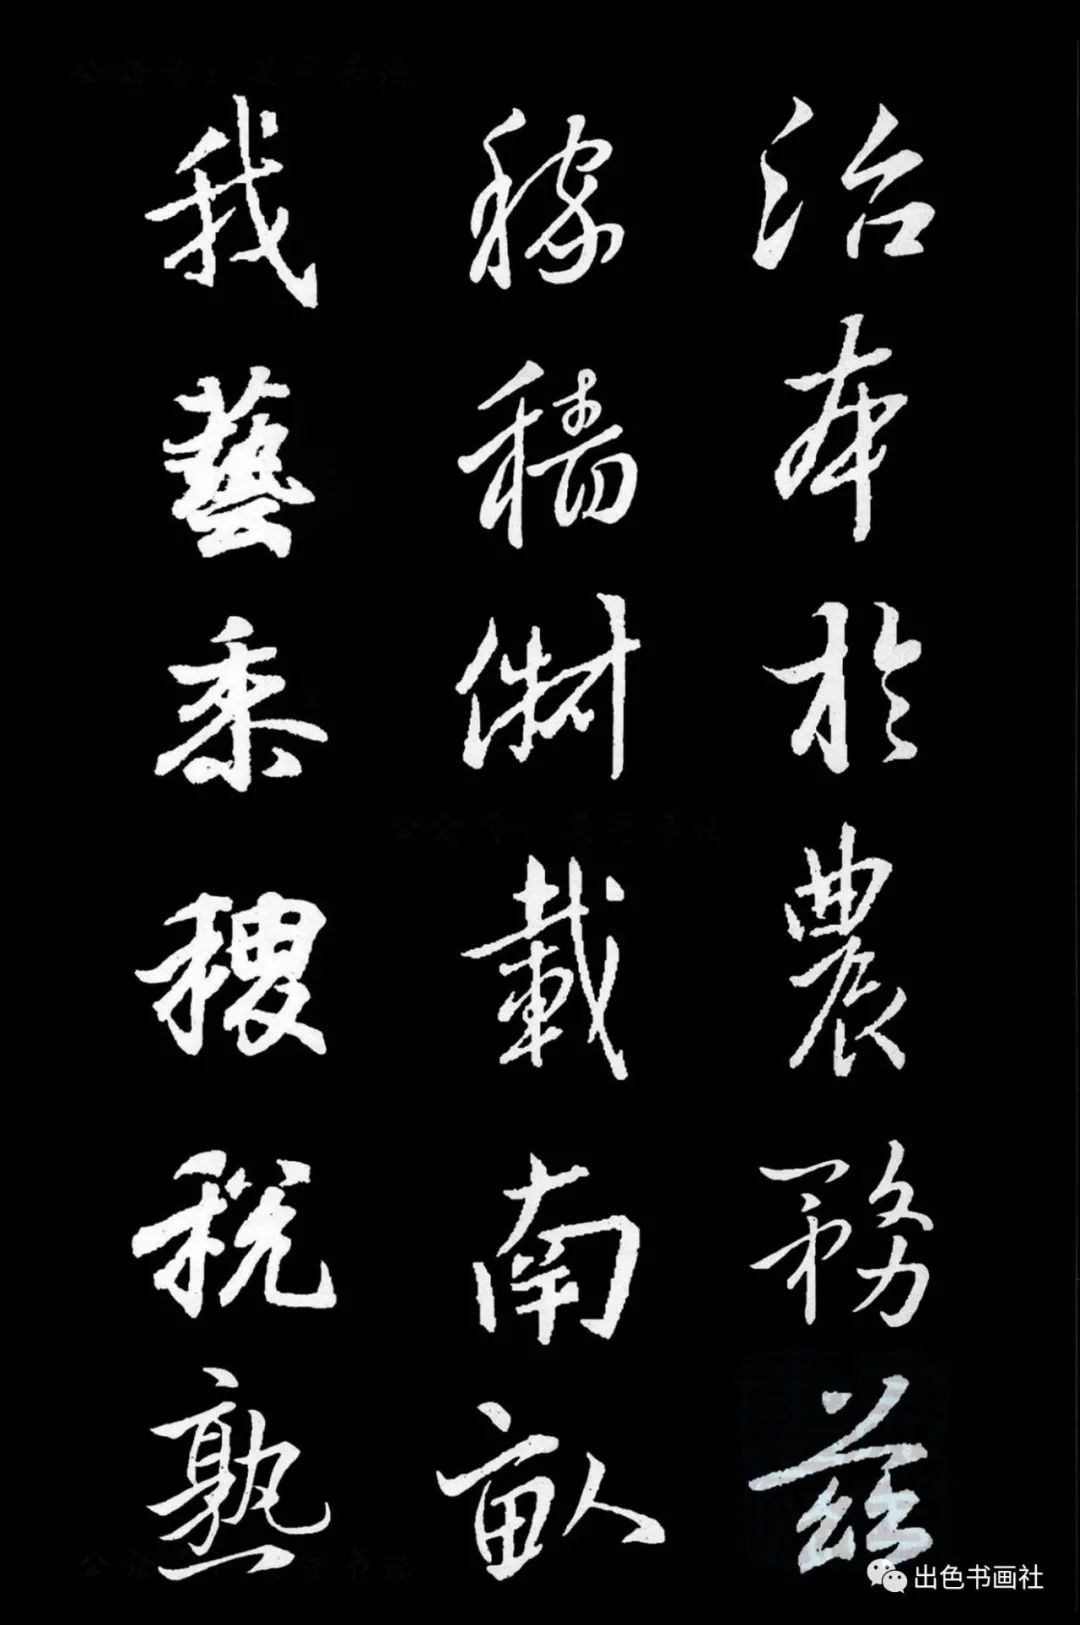 治本於農務茲
稼穡俶載南畝
我藝黍稷稅熟
出色书画社